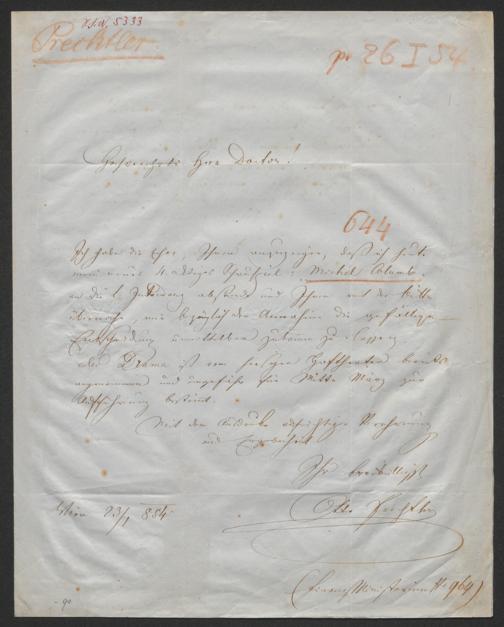 5333
Prechtler.
pr 26 I 54
Hochverehrter Herr Doctor!
644
Ich habe die Ehre, Ihnen anzuzeigen, daß ich heute
mein neues 4 aktiges Schauspiel: Michel Columb.
an die k. Intendanz absende und Ihnen mit der Bitte
bezüglich der Annahme die gefällige
Entscheidung zukommen zu lassen.
Das Drama ist vom hiesigen Hoftheater bereits
angenommen und ungefähr für Mitte März zur
Aufführung bestimmt.
Mit dem Ausdrucke aufrichtiger Verehrung
und Ergebenheit
Ihr bereitwilligst
Otto Prechtler
Wien 23/1 854
(Finanz Ministerium No 964)